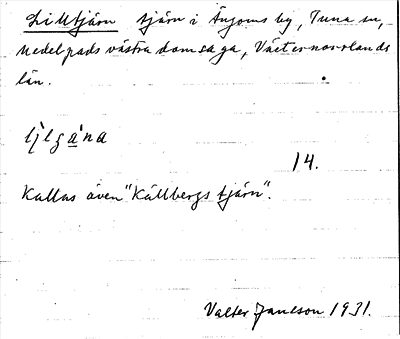 Lilltjärn tjärn i Ängoms by, Tuna sn,
Medelpads västra domsaga, Västernorrlands
län.
14.
Kallas även "Källbergs tjärn".
Valter Jansson 1931.